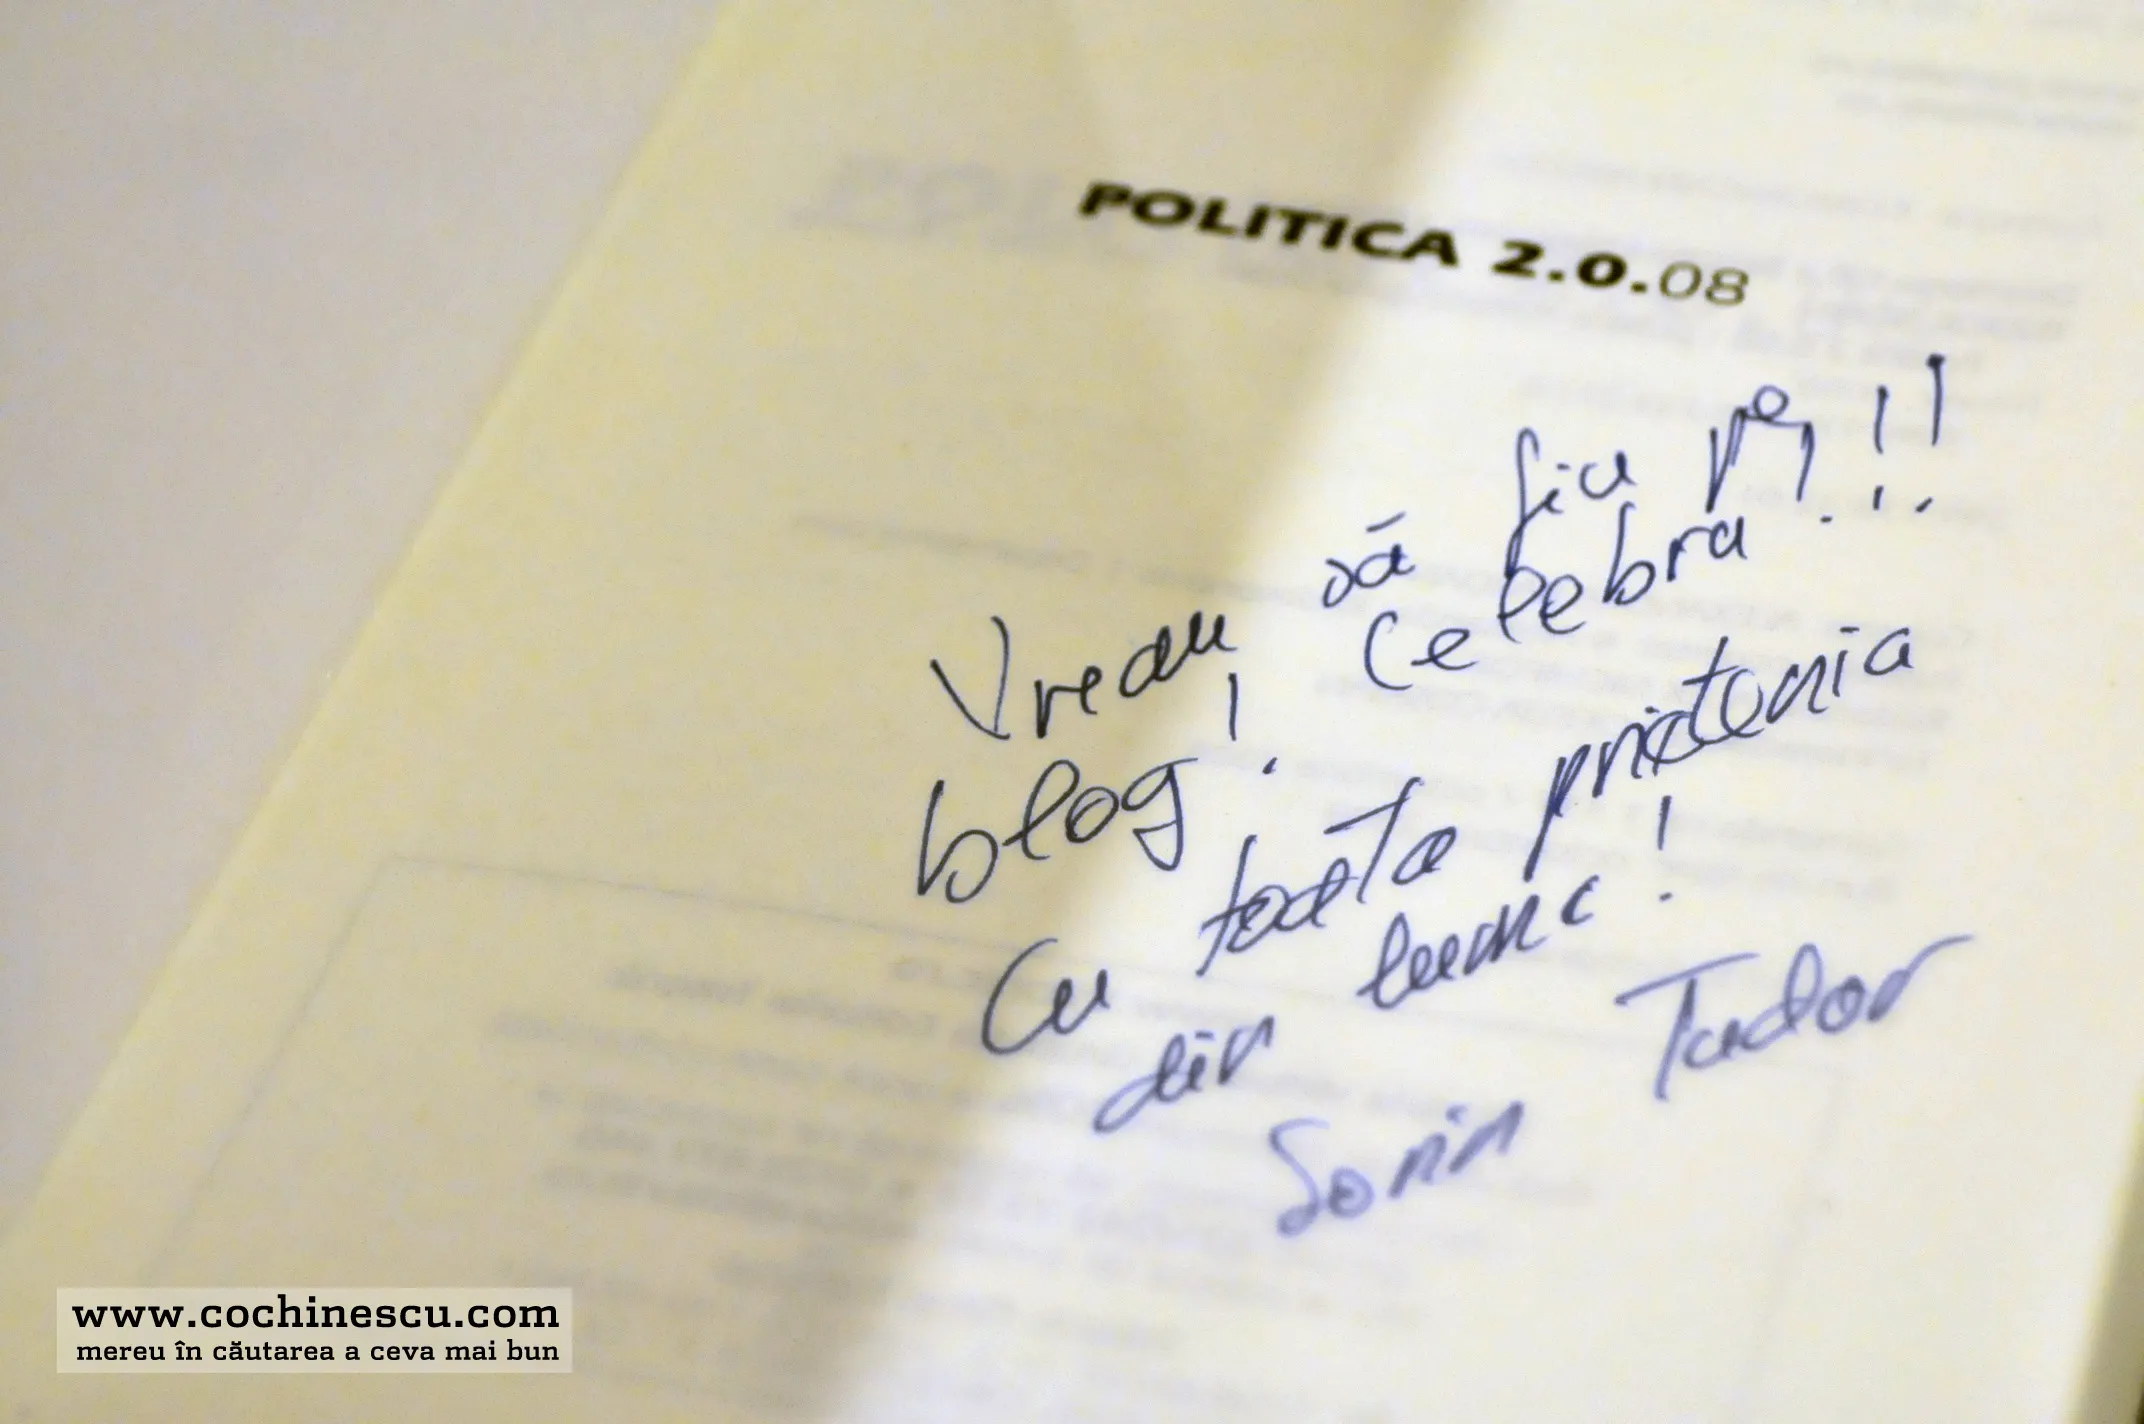 POLITICA 2.0.08
Vreau să fiu pe
blog! celebra!!!
Cu toata prietenia
din lume!
Sorin Tudor
www.cochinescu.com
mereu în căutarea a ceva mai bun